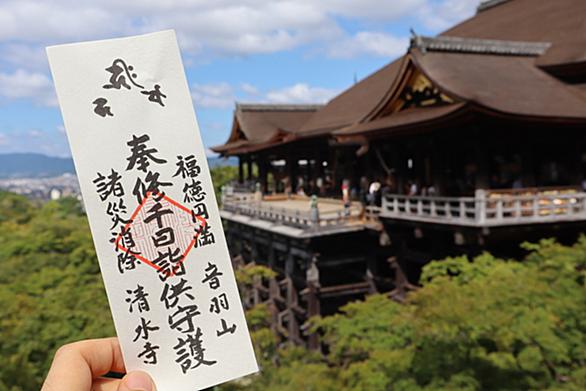 福徳円満
音羽山
奉修千日詣供守護
諸災消除
清水寺